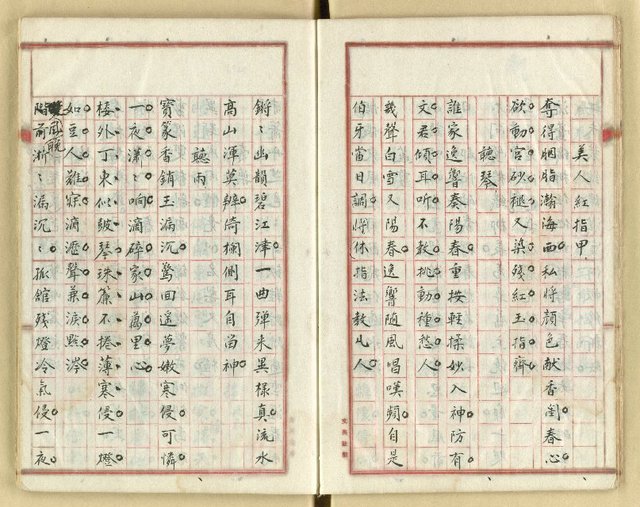 美人紅指甲
奪得胭脂瀚海西私將顏色献香劉春心
欲動宮砂褪又染殘紅玉指齊
聽琴
誰家逸響奏陽春重按輕操妙入神防有
文君傾耳听不敢挑動種愁人
幾聲白雪又陽春逸響隨風唱嘆頻自是
伯牙當日調將休指法教凡人
鏘〻幽韻碧江津一曲弹来異樣真流水
高山渾莫辨倚欄側耳自尚神
聽雨
寶篆香銷玉漏沉驚回遥夢嫩寒侵可憐
一夜瀟〻响滴碎家山萬里心
楼外丁東似皷琴珠簾不捲薄寒侵一燈
如豆人難寐滴瀝聲兼淚點涔
階前淅〻漏沉〻孤館残燈冷氣侵一夜